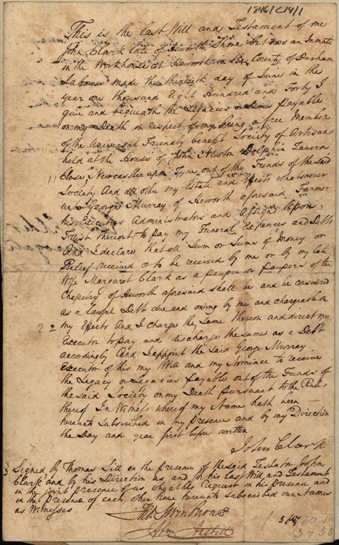 1846/C14/1
This is the last Will and Testament of me
John Clark late of Heworth Shore but now an Inmate
in the Workhouse at Heworth in the County of Durham
Labourer made this thirtieth day of June in the
year one thousand Eight Hundred and Forty I
give and bequeath the Legacies or Sums payable
on my Death in respect of my being a free Member
of the Universal Friendly benefit Society of Artisans
held at the House of John Dolphin Tavern
Close Newcastle upon Tyne out of the Funds of the said
Society And all other my Estate and Effects whatsoever
to George Murray of Heworth aforesaid Farmer
his Executors Administrators and Assigns Upon
Trust thereout to pay my Funeral Expences and Debts
And I declare that all Sum or Sums of Money
Relief received or to be received by me or by my
Wife Margaret Clark as a pauper or paupers of the
Chapelry of Heworth aforesaid shall be and be considered
as a lawful Debt due and owing by me and chargeable on
my Effects And I charge the same thereon and direct my
Executor to Pay and discharge the same as a Debt
accordingly And I appoint the said George Murray
Executor of this my Will and my Nominee to receive
the Legacy or Legacies payable out of the Funds of
the said Society on my Death pursuant to the Rules
thereof In Witness whereof my Name hath been
hereunto subscribed in my Presence and by my Direction
the Day and year first before written
John Clark
Signed by Thomas in the Presence of the said Testator John
Clark and by his Direction as and for his last Will and Testament
in the joint presence of us who at his Request in his Presence and
in the Presence of each other have hereunto subscribed our Names
as Witnesses